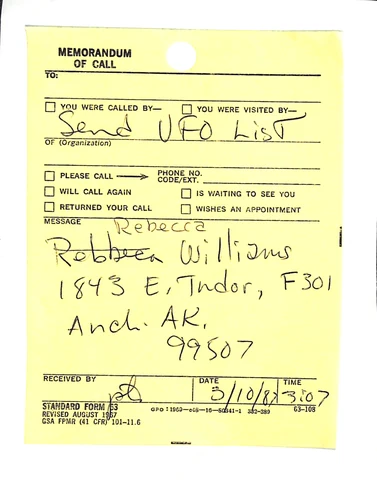 MEMORANDUM
OF CALL
TO:
YOU WERE CALLED BY— YOU WERE VISITED BY—
Send UFO List
OF (Organization)
PLEASE CALL → PHONE NO. CODE/EXT.
WILL CALL AGAIN IS WAITING TO SEE YOU
RETURNED YOUR CALL WISHES AN APPOINTMENT
MESSAGE
Rebecca
Williams
1843 E. Tudor, F301
Anch. AK,
99507
RECEIVED BY DATE TIME
3/10/87 3:07
STANDARD FORM 63
REVISED AUGUST 1967
GSA FPMR (41 CFR) 101-11.6
GPO : 1969 63-108